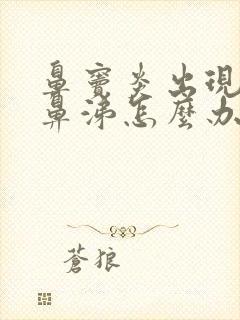 鼻竇炎出現
鼻涕怎麼办
蒼狼